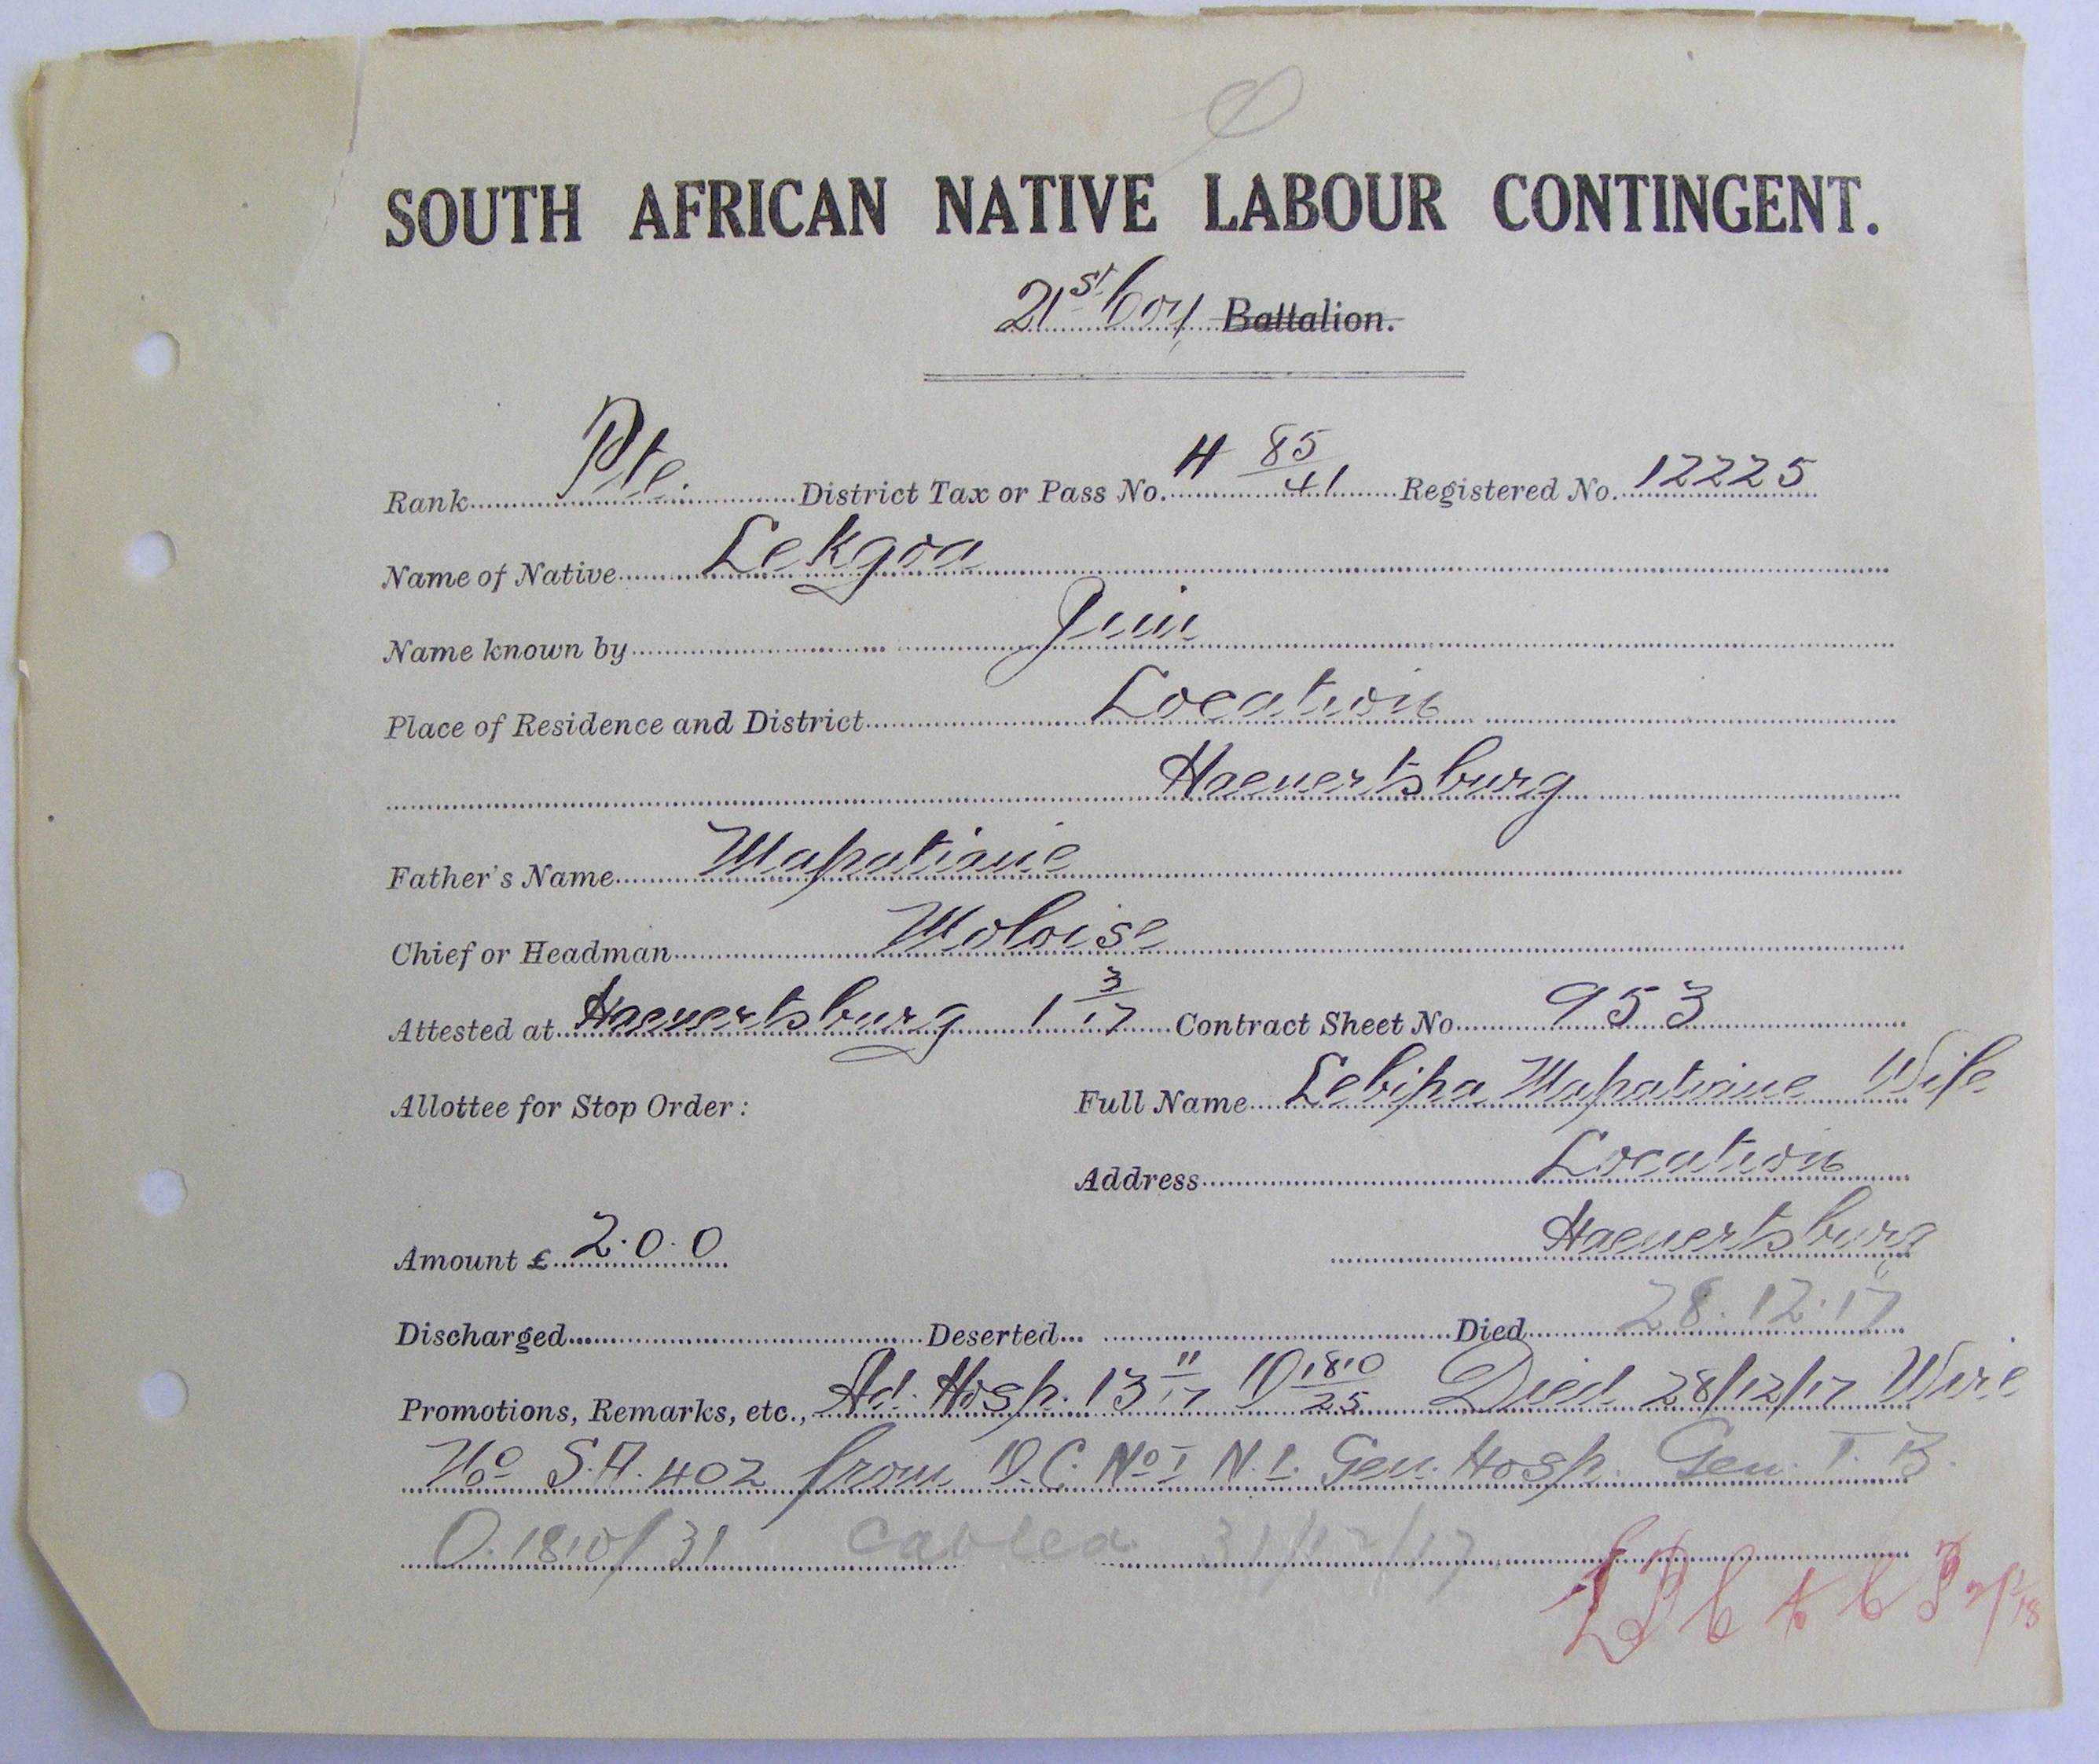 SOUTH AFRICAN NATIVE LABOUR CONTINGENT.
21st Coy Battalion.
Rank Pte. District Tax or Pass No. H 85/41 Registered No. 12225
Name of Native Lekgoa
Name known by Jim
Place of Residence and District Location
Haenertsburg
Father's Name Mapatiane
Chief or Headman Moloise
Attested at Haenertsburg 1 3/17 Contract Sheet No. 953
Allottee for Stop Order: Full Name Lebipa Mapatiane Wife
Address Location
Amount £ 2.0.0 Haenertsburg
Discharged Deserted Died 28.12.17
Promotions, Remarks, etc., Ad. Hosp. 13 11/17 O 1810/25 Died 28/12/17 Wire
No S.A. 402 from O.C. No 1 N. L. Gen. Hosp. Gen. T. B.
O. 1810/31 Cabled 31/12/17